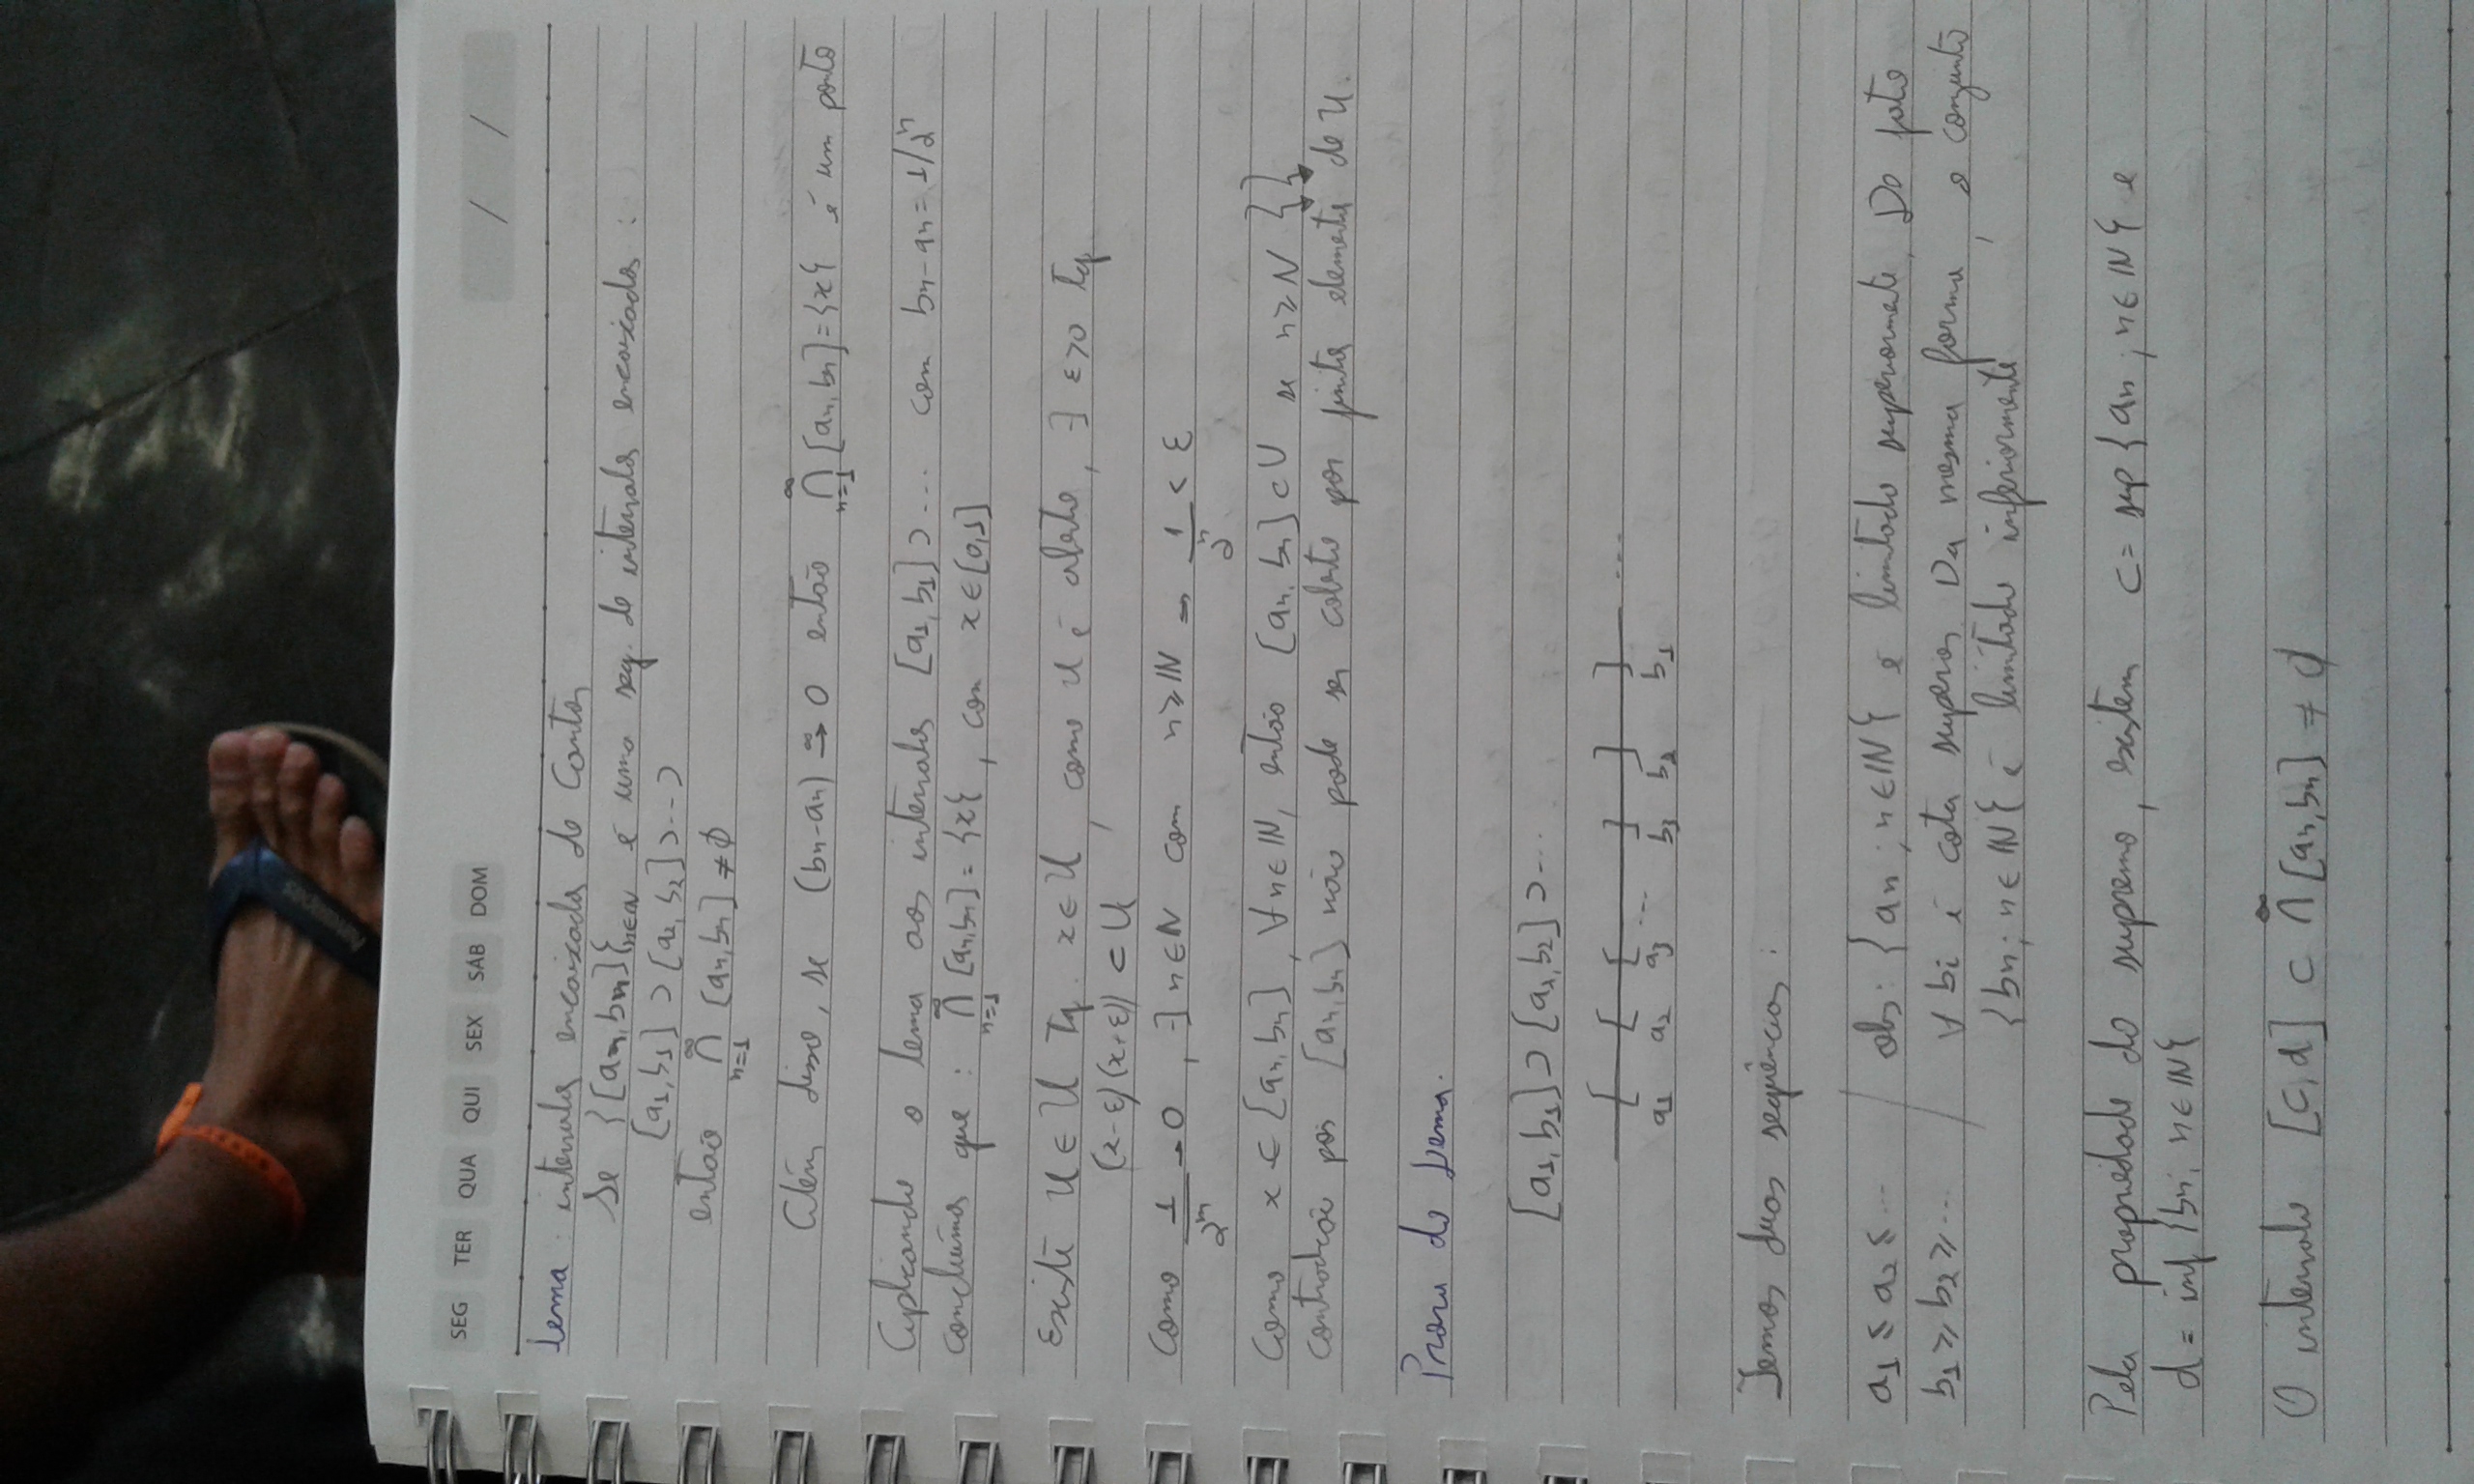 SEG TER QUA QUI SEX SÁB DOM / /
Lema: intervalos encaixados de Cantor
Se {[an, bn]}n∈N é uma seq. de intervalos encaixados:
[a1, b1] ⊃ [a2, b2] ⊃ ... ⊃
então ∞∩n=1 [an, bn] ≠ ∅
Além disso, se (bn - an) → 0 então ∞∩n=1 [an, bn] = {x} é um ponto
Aplicando o lema aos intervalos [a1, b1] ⊃ ... com bn - an = 1/2ⁿ
concluímos que: ∞∩n=1 [an, bn] = {x}, com x ∈ [0,1]
Existe U ∈ U tq. x ∈ U como U é aberto, ∃ ε>0 tq.
(x-ε)(x+ε)) ⊂ U
Como 1/2ⁿ → 0, ∃ n ∈ N com n ≥ N ⇒ 1/2ⁿ < ε
Como x ∈ [an, bn], ∀ n ∈ IN, então [an, bn] ⊂ U se n ≥ N
contradição pois [an, bn] não pode ser coberto por finitos elementos de U.
Prova do Lema.
[a1, b1] ⊃ [a2, b2] ⊃ ...
[ [ [ ] ] ] ...
a1 a2 a3 ... b3 b2 b1
Temos duas sequências:
a1 ≤ a2 ≤ ... / obs: {an; n ∈ IN} é limitado superiormente. Do fato
b1 ≥ b2 ≥ ... / ∀ bi é cota superior Da mesma forma, o conjunto
{bn; n ∈ IN} é limitado inferiormente
Pela propriedade do supremo, existem c = sup {an; n ∈ IN} e
d = inf {bn; n ∈ IN}
O intervalo [c, d] ⊂ ∞∩ [an, bn] ≠ ∅